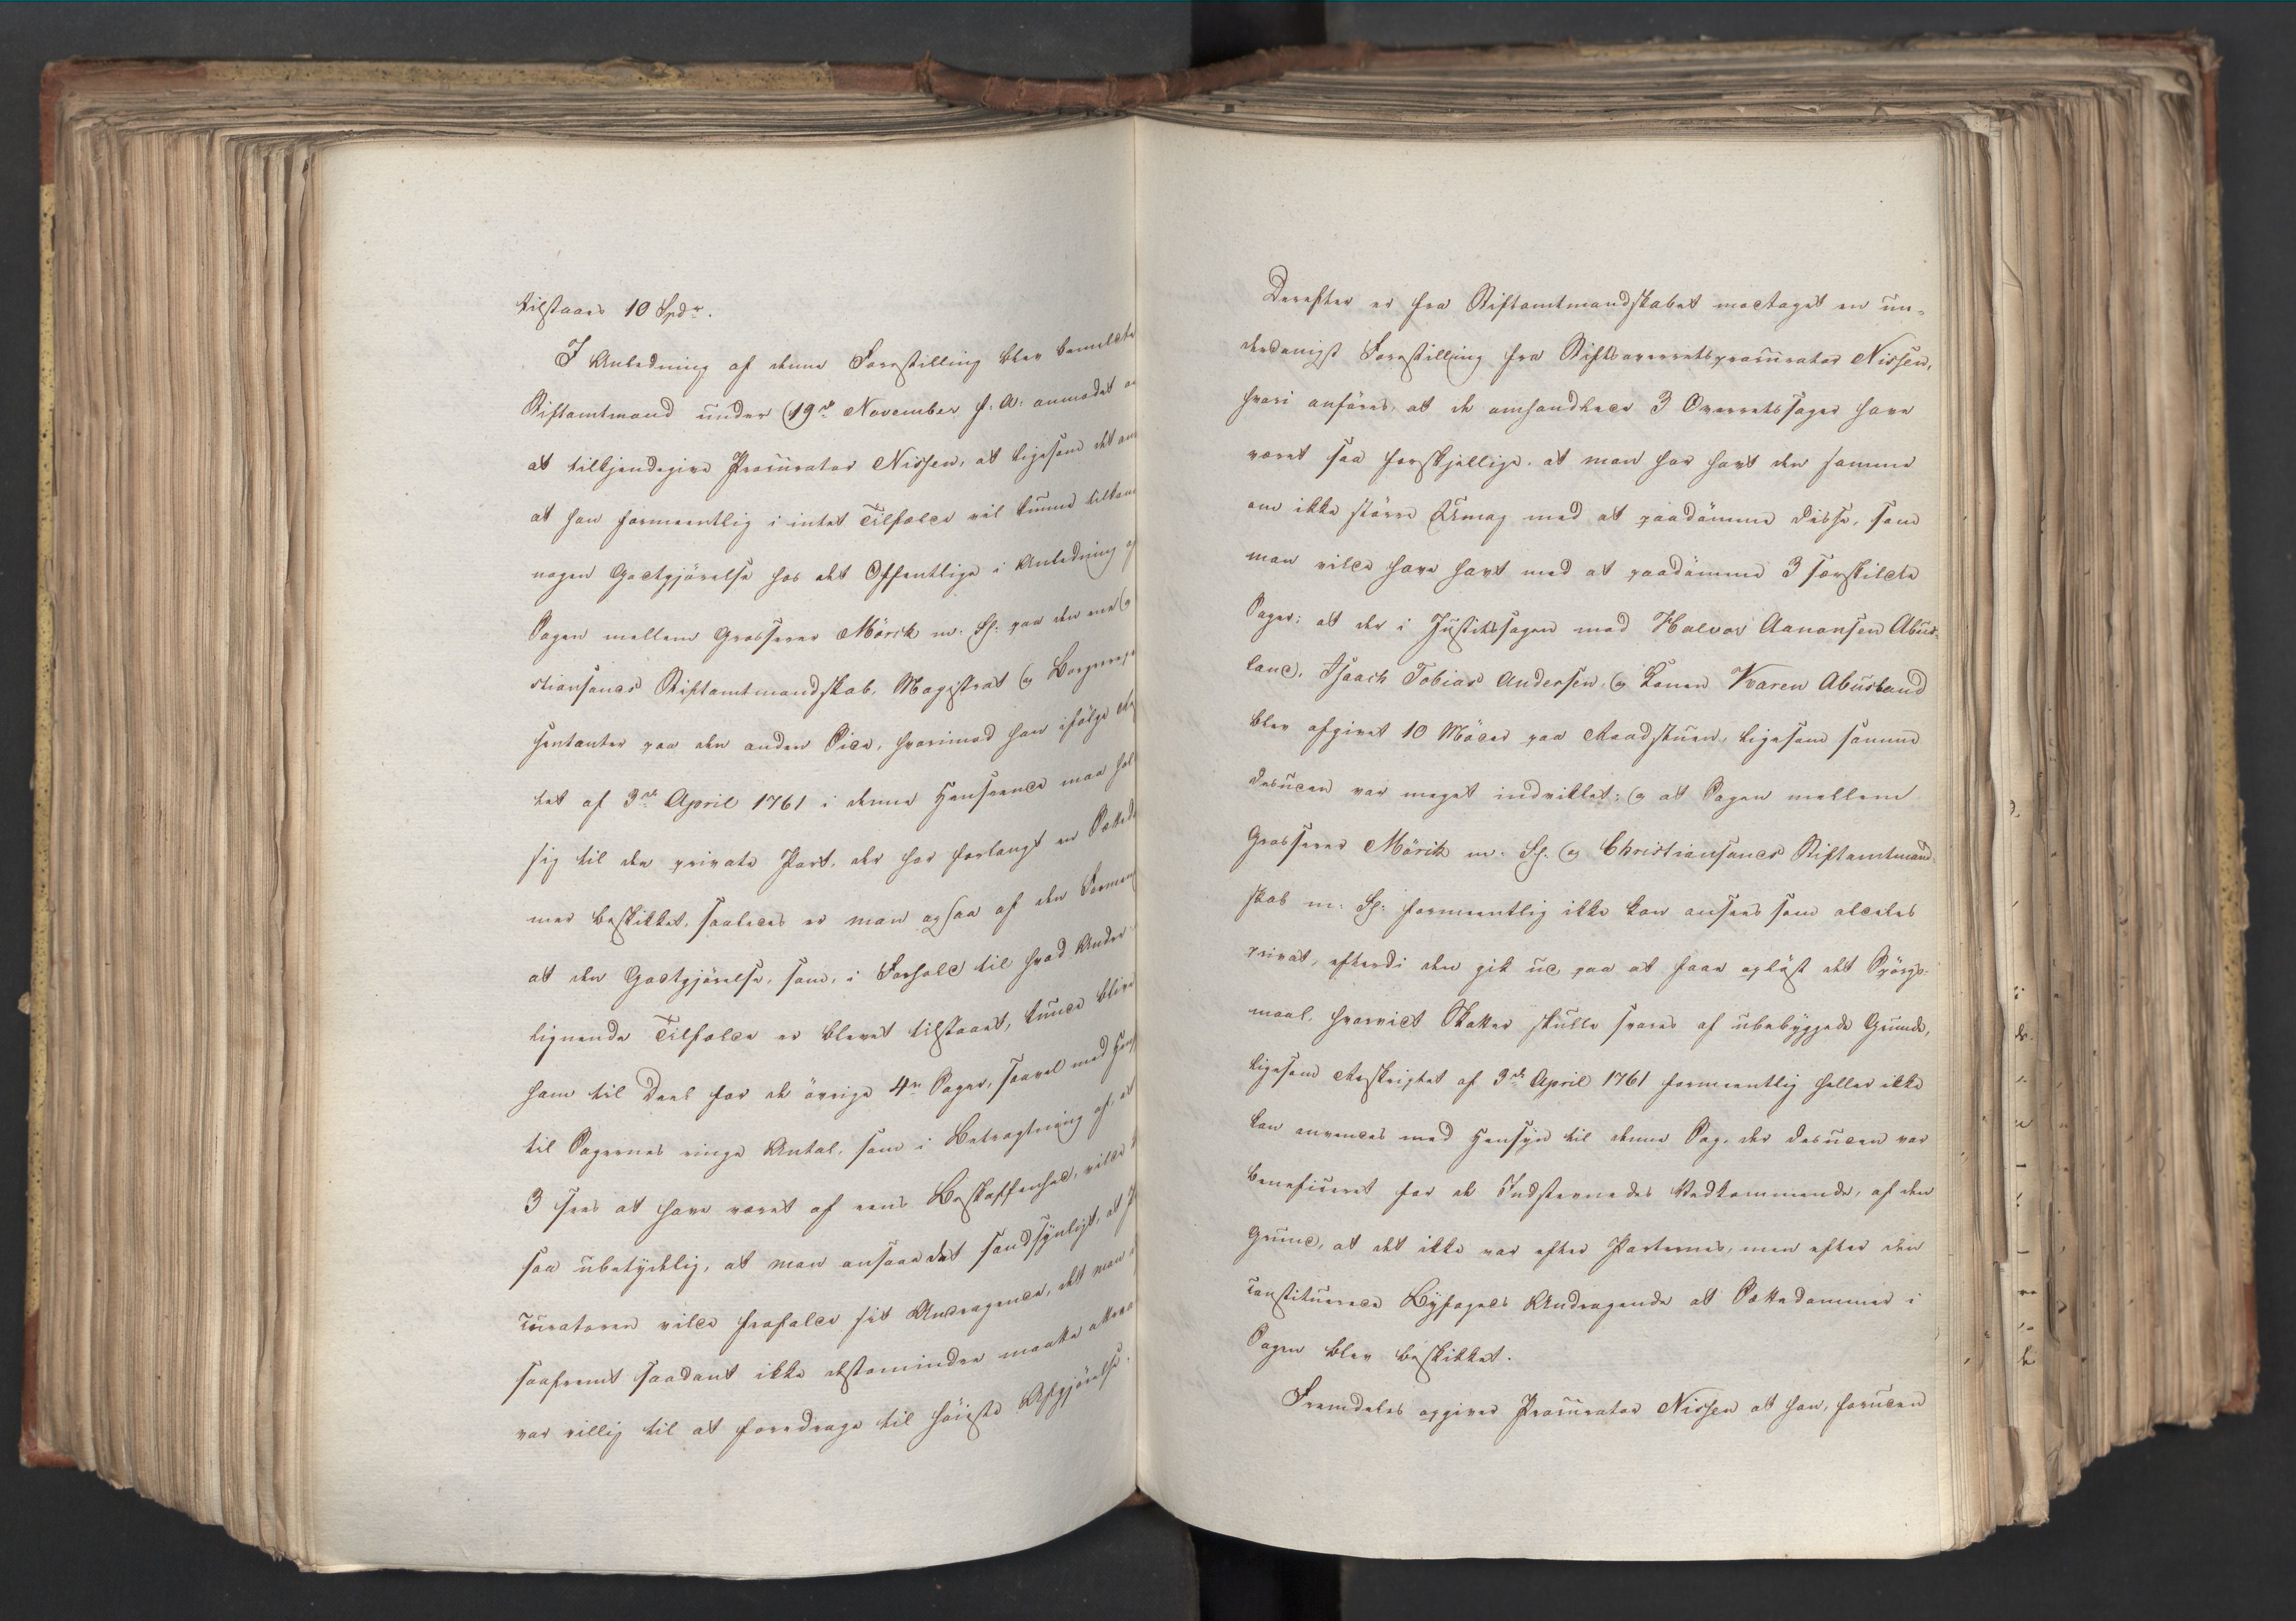 tilstaaes 10 Spdr.
I Anledning af denne Forestilling blev bemeldte
Stiftamtmand under 19de November f. A. anmodet o
at tilkjendegive Procurator Nissen, at ligesom det an
at han formeentlig i intet Tilfælde vil kunne tilkom
nogen Godtgjörelse hos det Offentlige i Anledning af
Sagen mellem Grosserer Mörch m. Fl. paa den ene og
stiansands Stiftamtmandskab, Magistrat og Borgerrepr
sentanter paa den anden Side, hvorimod han ifölge Re
tet af 3die April 1761 i denne Henseende maa hol
sig til den private Part, der har forlangt en Sættedo
mer beskikket, saaledes er man ogsaa af den Formen
at den Godtgjörelse, som, i Forhold til hvad Andre i
lignende Tilfælde er blevet tilstaaet, kunde blive
ham til Deel for de övrige 4re Sager, saavel med Hens
til Sagernes ringe Antal, som i Betragtning af, at
3 sees at have været af eens Beskaffenhed, vilde
saa ubetydelig, at man ansaae det sandsynligt, at P
curatoren vilde frafalde sit Andragende, det man
saafremt saadant ikke destomindre maatte attraa
var villig til at foredrage til höieste Afgjörelse.
Derefter er fra Stiftamtmandskabet modtaget en un-
derdanigst Forestilling fra Stiftsoverretsprocurator Nissen,
hvori anföres, at de omhandlede 3 Overretssager have
været saa forskjellige, at man har havt den samme
om ikke större Umag med at paadömme disse, som
man vilde have havt med at paadömme 3 særskildte
Sager; at der i Justitssagen mod Halvor Aanonsen Abus-
land, Isaach Tobias Andersen, og Konen Karen Abusland
blev afgivet 10 Möder paa Raadstuen, ligesom samme
desuden var meget indviklet; og at Sagen mellem
Grosserer Mörch m. Fl. og Christiansands Stiftamtmand-
skab m. Fl. formeentlig ikke kan ansees som aldeles
privat, efterdi den gik ud paa at faae oplöst det Spörgs-
maal, hvorvidt Skatter skulle svares af ubebyggede Grunde,
ligesom Reskriptet af 3die April 1761 formeentlig heller ikke
kan anvendes med Hensyn til denne Sag, der desuden var
beneficeret for de Indstevnedes Vedkommende, af den
Grund, at det ikke var efter Parternes, men efter den
constituerede Byfogeds Andragende at Sættedommer i
Sagen blev beskikket.
Fremdeles opgiver Procurator Nissen at han, foruden